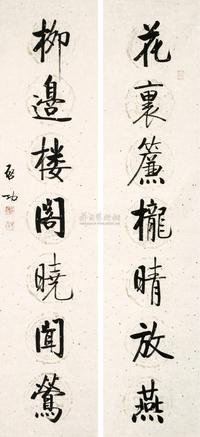 花裏簾櫳晴放燕
柳邊楼閣曉聞鶯
啟功